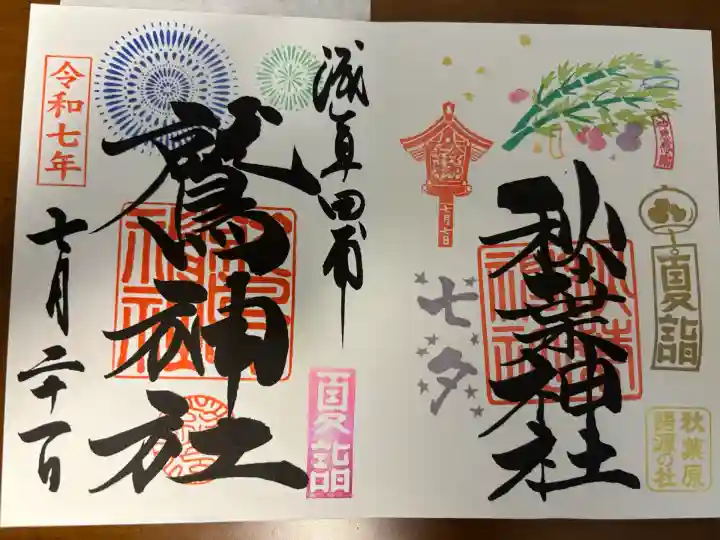 秋葉神社
七夕
七月七日
夏詣
秋葉原
神社
浅草田甫
鷲神社
令和七年
七月二十一日
夏詣